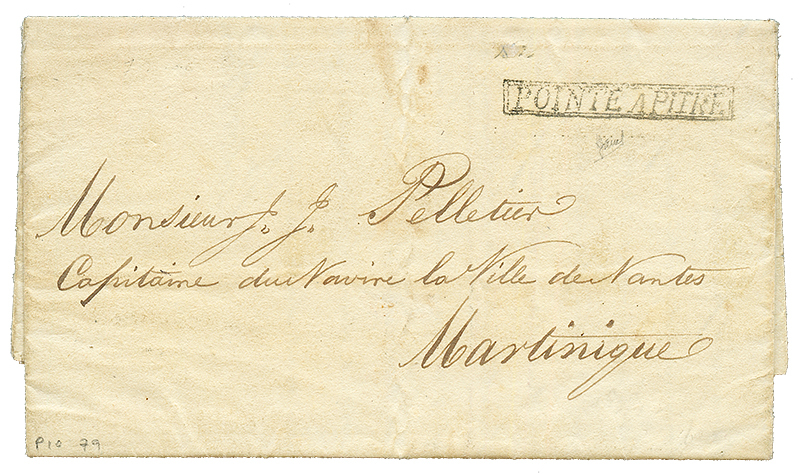 POINTE APITRE
Monsieur J. J. Pelletier
Capitaine du Navire la Ville de Nantes
Martinique
P10 79